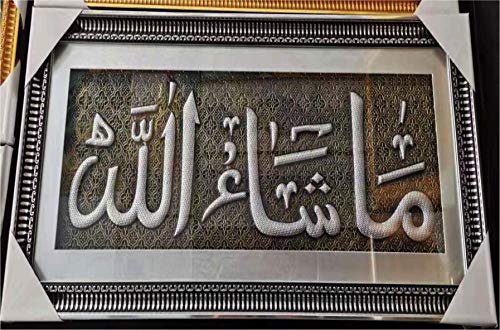 مَّا شَاءُ اللّٰه